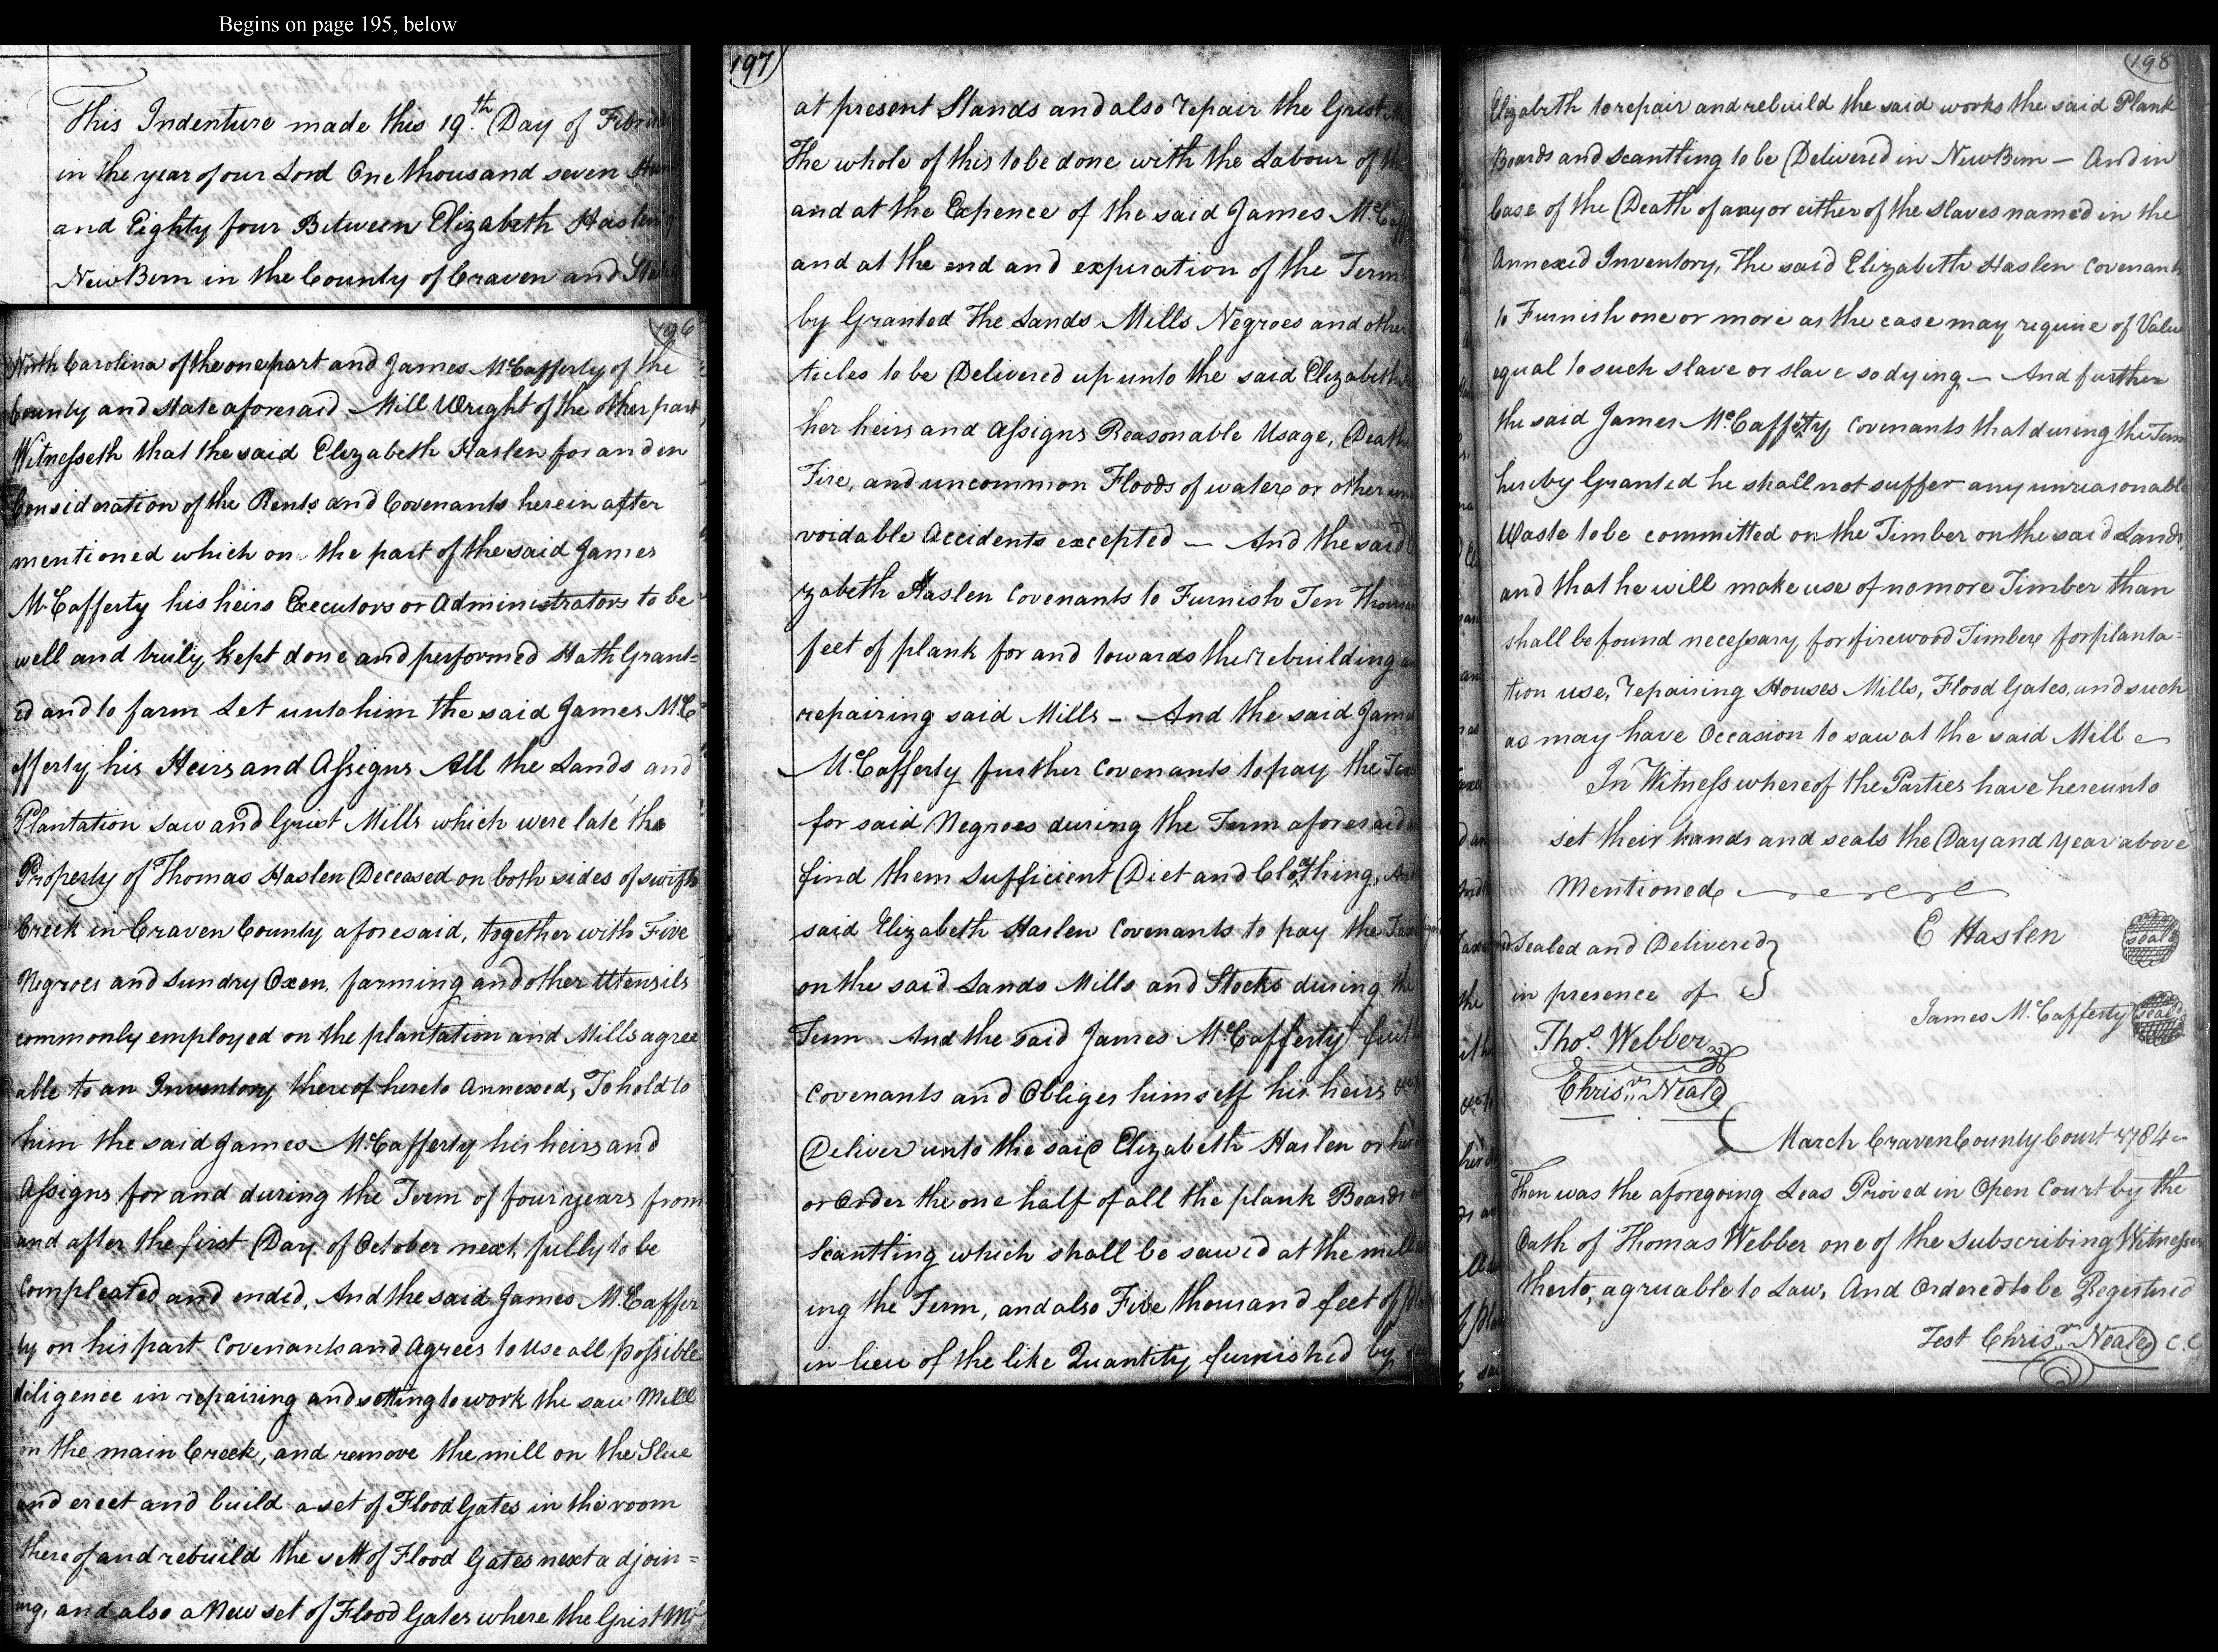 Begins on page 195, below
This Indenture made this 19th. Day of
in the year of our Lord One thousand seven
and Eighty four Between Elizabeth Haslen
New Bern in the County of Craven and
196
North Carolina of the one part and James McCafferty of the
County and State aforesaid Mill Wright of the other part,
Witnesseth that the said Elizabeth Haslen for and in
Consideration of the Rents and Covenants herein after
mentioned which on the part of the said James
McCafferty his heirs Executors or Administrators to be
well and truily kept done and performed Hath Grant=
ed and to farm Let unto him the said James McC
afferty his Heirs and Assigns All the Lands and
Plantation Saw and Grist Mills which were late the
Property of Thomas Haslen Deceased on both sides of swift
Creek in Craven County aforesaid, together with Five
Negroes and Sundry Oxen, farming and other Utensils
commonly employed on the plantation and Mills agree
able to an Inventory thereof hereto Annexed, To hold to
him the said James McCafferty his heirs and
Assigns for and during the Term of four years from
and after the first Day of October next, fully to be
Compleated and ended, And the said James McCaffer
ty on his part Covenants and Agrees to use all possible
diligence in repairing and setting to work the saw Mill
on the main Creek, and remove the mill on the Slue
and erect and build a set of Flood Gates in the room
thereof and rebuild the sett of Flood Gates next adjoin=
ing, and also a New set of Flood Gates where the Grist
197
at present Stands and also repair the Grist
The whole of this to be done with the Labour of
and at the Expence of the said James
and at the end and expiration of the Term
by Granted The Lands Mills Negroes and other
ticles to be Delivered up unto the said Elizabeth
her heirs and Assigns Reasonable Usage, Death
Fire, and uncommon Floods of water or other
voidable Accidents excepted — And the said
zabeth Haslen Covenants to Furnish Ten
feet of plank for and towards the rebuilding
repairing said Mills — And the said
McCafferty further Covenants to pay the
for said Negroes during the Term aforesaid
find them Sufficient Diet and Cloathing,
said Elizabeth Haslen Covenants to pay the
on the said Lands Mills and Stocks during the
Term And the said James McCafferty
Covenants and Obliges himself his heirs
Deliver unto the said Elizabeth Haslen or
or Order the one half of all the plank Boards
Scantling which shall be sawed at the
ing the Term, and also Five thousand feet of
in lieu of the like Quantity furnished by
198
Elizabeth to repair and rebuild the said works the said Plank
Boards and Scantling to be Delivered in New Bern — And in
Case of the Death of any or either of the Slaves named in the
Annexed Inventory, The said Elizabeth Haslen Covenants
to Furnish one or more as the case may require of Value
equal to such slave or slave so dying — And further
the said James McCafferty Covenants that during the Term
hereby Granted he shall not suffer any unreasonable
Waste to be committed on the Timber on the said Lands,
and that he will make use of no more Timber than
shall be found necessary for firewood Timber for planta=
tion use, repairing Houses Mills, Flood Gates, and such
as may have Occasion to saw at the said Mill
In Witness whereof the Parties have hereunto
set their hands and seals the Day and year above
Mentioned
Sealed and Delivered
in presence of
E Haslen seal
James McCafferty seal
Thos. Webber
Chrisr. Neale
March Craven County Court 1784
Then was the aforegoing Leas Proved in Open Court by the
Oath of Thomas Webber one of the Subscribing Witnesses
therto, agruable to Law, And Ordered to be Registered
Test Chrisr. Neale C.C